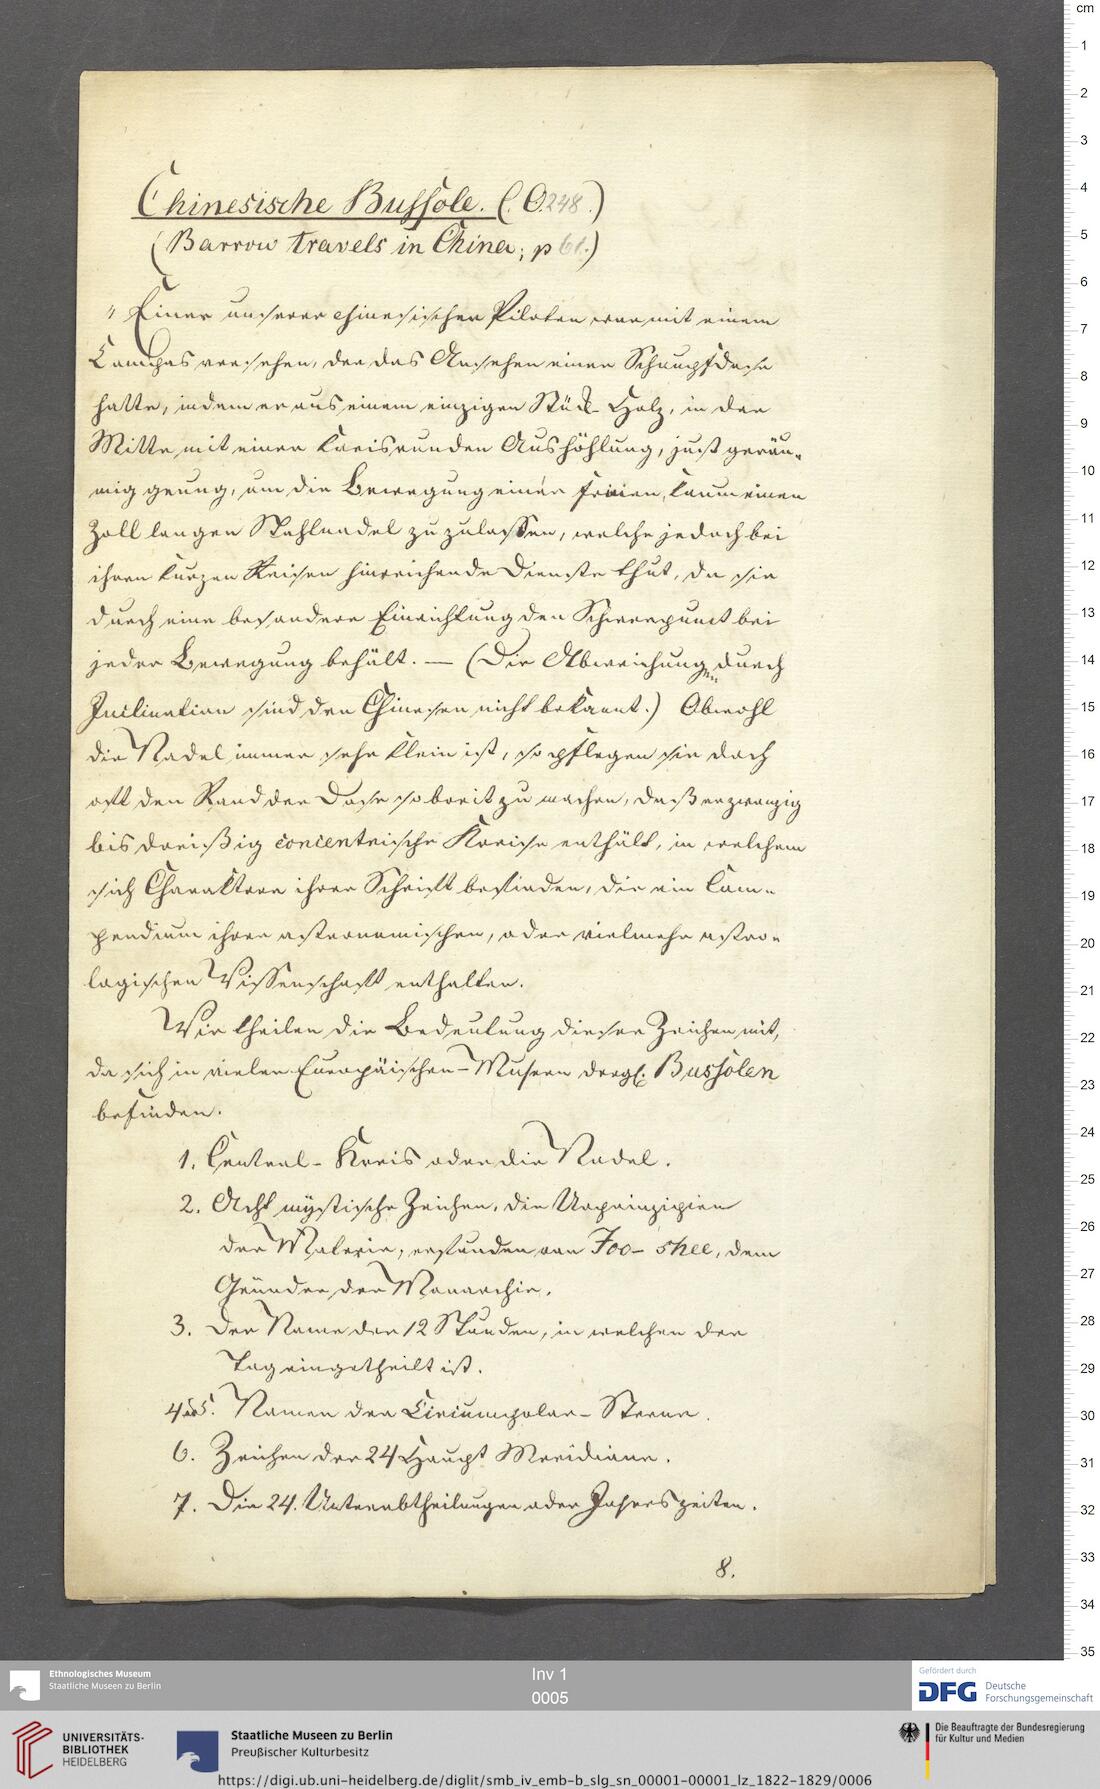 Chinesische Bussole. (C. 248.)
(Barrow travels in China; p 61.)
"Einer unserer chinesischen Piloten war mit einem
Compas versehen, der das Ansehen einer Schnupfdose
hatte, indem er aus einem einzigen Stück Holz, in der
Mitte mit einer kreisrunden Aushöhlung, just geräu-
mig genug, um die Bewegung einer freien, kaum einen
Zoll langen Stahlnadel zu zulassen, welche jedoch bei
ihren kurzen Reisen hinreichende Dienste thut, da sie
durch eine besondere Einrichtung den Schwerpunct bei
jeder Bewegung behält. — (Die Abweichungen durch
Inclination sind den Chinesen nicht bekannt.) Obwohl
die Nadel immer sehr klein ist, so pflegen sie doch
oft den Rand der Dose so breit zu machen, daß er zwanzig
bis dreißig concentrische Kreise enthält, in welchem
sich Charaktere ihrer Schrift befinden, die ein Com-
pendium ihrer astronomischen, oder vielmehr astro-
logischen Wissenschaft enthalten.
Wir theilen die Bedeutung dieser Zeichen mit,
da sich in vielen Europäischen-Museen dergl. Bussolen
befinden.
1. Central-Kreis oder die Nadel.
2. Acht mystische Zeichen, die Urprinzipien
der Materie, erfunden von Foo-shee, dem
Gründer der Monarchie.
3. Der Name der 12 Stunden, in welchen der
Tag eingetheilt ist.
4 u 5. Namen der Circumpolar-Sterne.
6. Zeichen der 24 Haupt Meridiane.
7. Die 24. Unterabtheilungen oder Jahreszeiten.
8.
cm
1
2
3
4
5
6
7
8
9
10
11
12
13
14
15
16
17
18
19
20
21
22
23
24
25
26
27
28
29
30
31
32
33
34
35
Ethnologisches Museum
Staatliche Museen zu Berlin
Inv 1
0005
Gefördert durch
DFG Deutsche
Forschungsgemeinschaft
UNIVERSITÄTS-
BIBLIOTHEK
HEIDELBERG
Staatliche Museen zu Berlin
Preußischer Kulturbesitz
Die Beauftragte der Bundesregierung
für Kultur und Medien
https://digi.ub.uni-heidelberg.de/diglit/smb_iv_emb-b_slg_sn_00001-00001_lz_1822-1829/0006